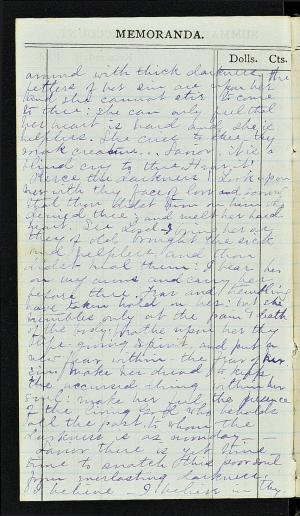 MEMORANDA.
Dolls. Cts.
around with thick darkness. The
fetters of her sin are upon her
and she cannot stir to come
to thee: she can only feel that
her heart is hard and she is
helpless. She cries to thee thy
weak creature... Saviour! It is a
blind cry to thee. Hear it!
Pierce the darkness! Look upon
her with thy face of love and sorrow
that thou didst turn on him who
denied thee; and melt her hard
heart. See, Lord, I bring her, as
they of old brought the sick
and helpless, and thou
didst heal them: I bear her
on my arms and carry her
before thee. Fear and trembling
have taken hold on her: but she
trembles only at the pain & death
of the body: breathe upon her thy
life-giving Spirit, and put a
new fear within her - the fear of her
sin. Make her dread to keep
the accursed thing within her
soul: make her feel the presence
of the living God who beholds
all the past, to whom the
darkness is as noonday.
Saviour there is yet time
time to snatch this poor soul
from everlasting darkness.
I believe - I believe in thy